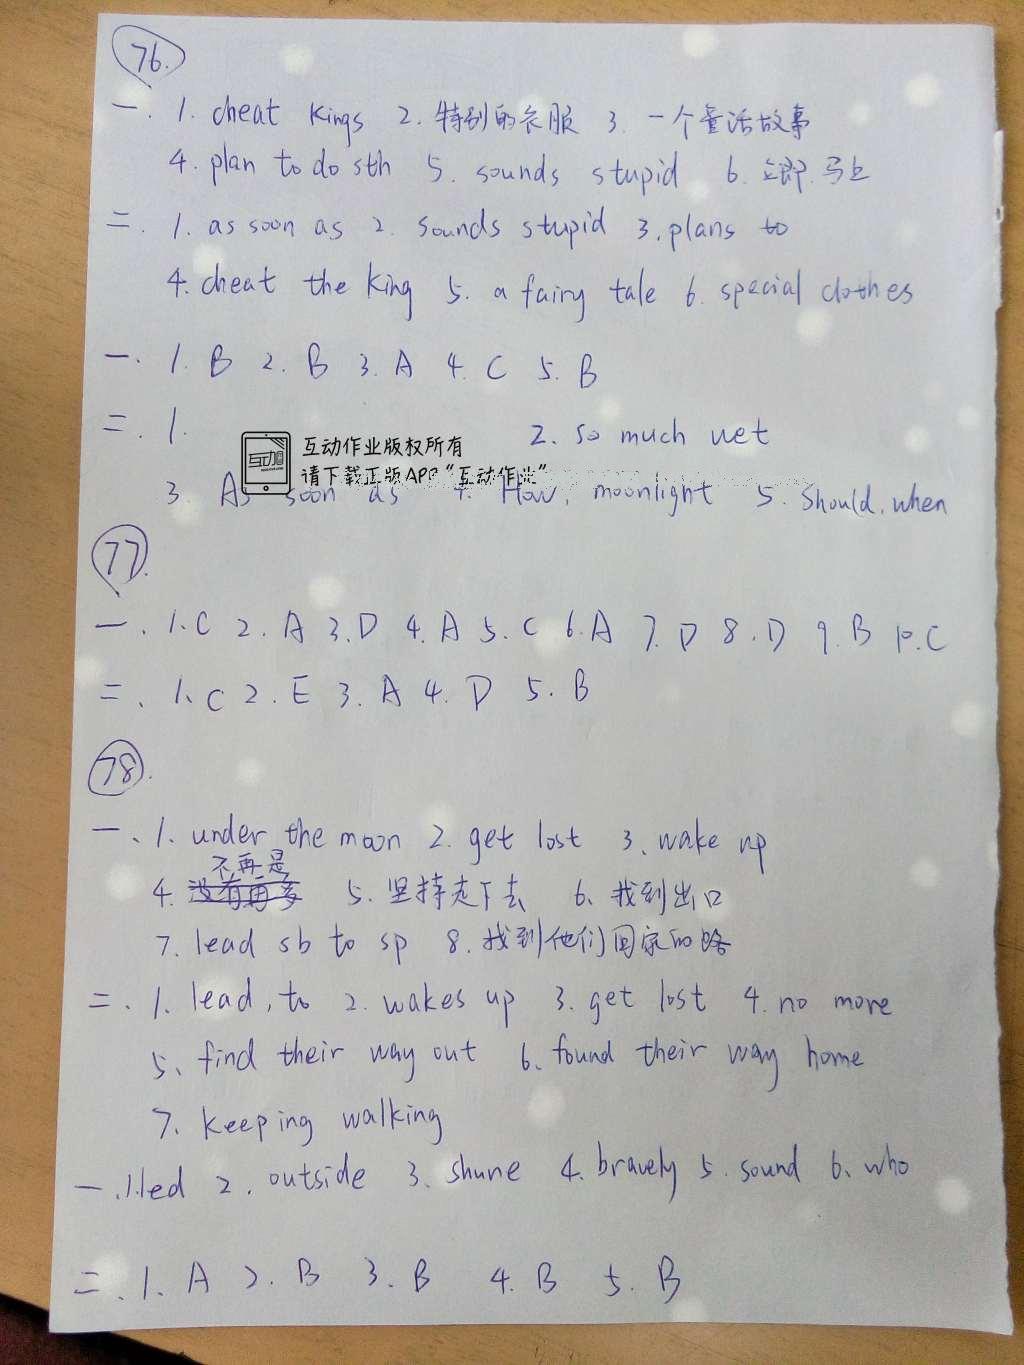 76.
一. 1. cheat kings 2. 特别的衣服 3. 一个童话故事
4. plan to do sth 5. sounds stupid 6. 立即.马上
二. 1. as soon as 2. sounds stupid 3. plans to
4. cheat the king 5. a fairy tale 6. special clothes
一. 1. B 2. B 3. A 4. C 5. B
二. 1. 2. so much wet
互动作业版权所有
请下载正版APP“互动作业”
互动
3. As soon as 4. How, moonlight 5. Should, when
77.
一. 1. C 2. A 3. D 4. A 5. C 6. A 7. D 8. D 9. B 10. C
二. 1. C 2. E 3. A 4. D 5. B
78.
一. 1. under the moon 2. get lost 3. wake up
不再是
4. 没有再多 5. 坚持走下去 6. 找到出口
7. lead sb to sp 8. 找到他们回家的路
二. 1. lead, to 2. wakes up 3. get lost 4. no more
5. find their way out 6. found their way home
7. keeping walking
一. 1. led 2. outside 3. shune 4. bravely 5. sound 6. who
二. 1. A 2. B 3. B 4. B 5. B